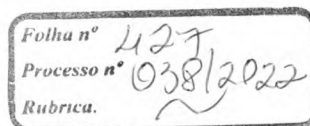 Folha nº 427
Processo nº 038/2022
Rubrica.